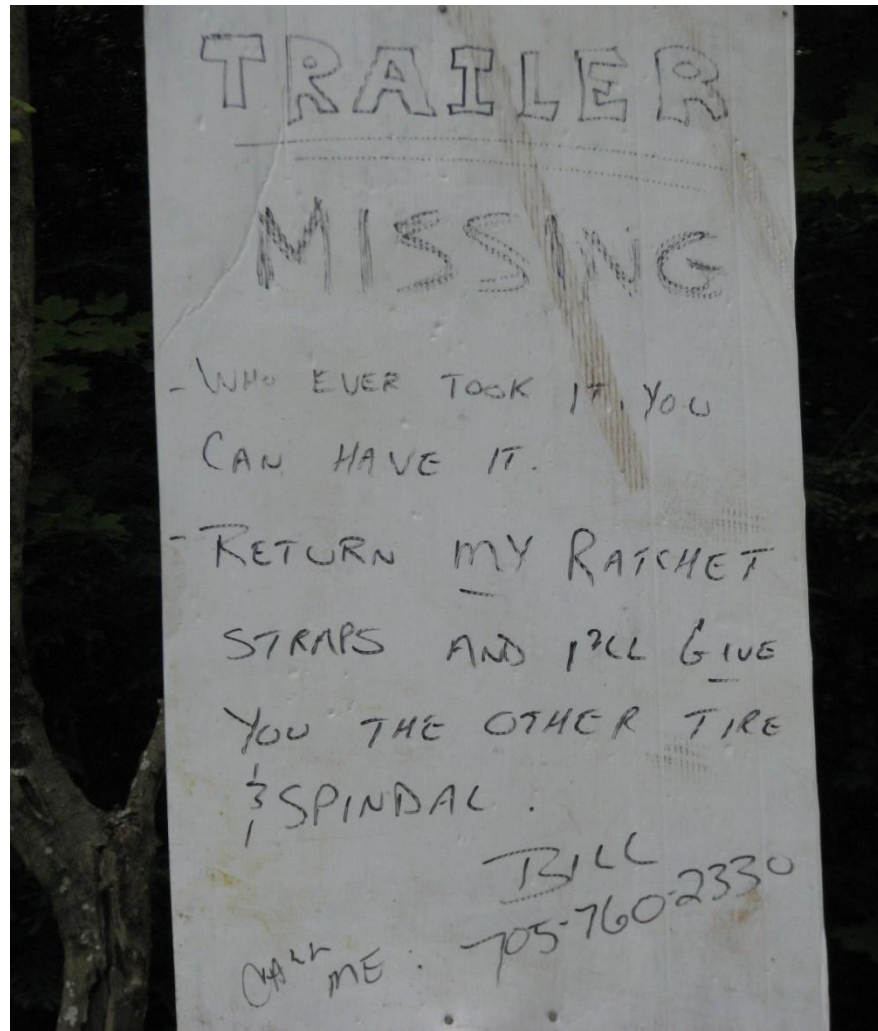 TRAILER
MISSING
- WHO EVER TOOK IT, YOU
CAN HAVE IT.
- RETURN MY RATCHET
STRAPS AND I'LL GIVE
YOU THE OTHER TIRE
& SPINDAL.
BILL
705-760-2330
CALL ME: